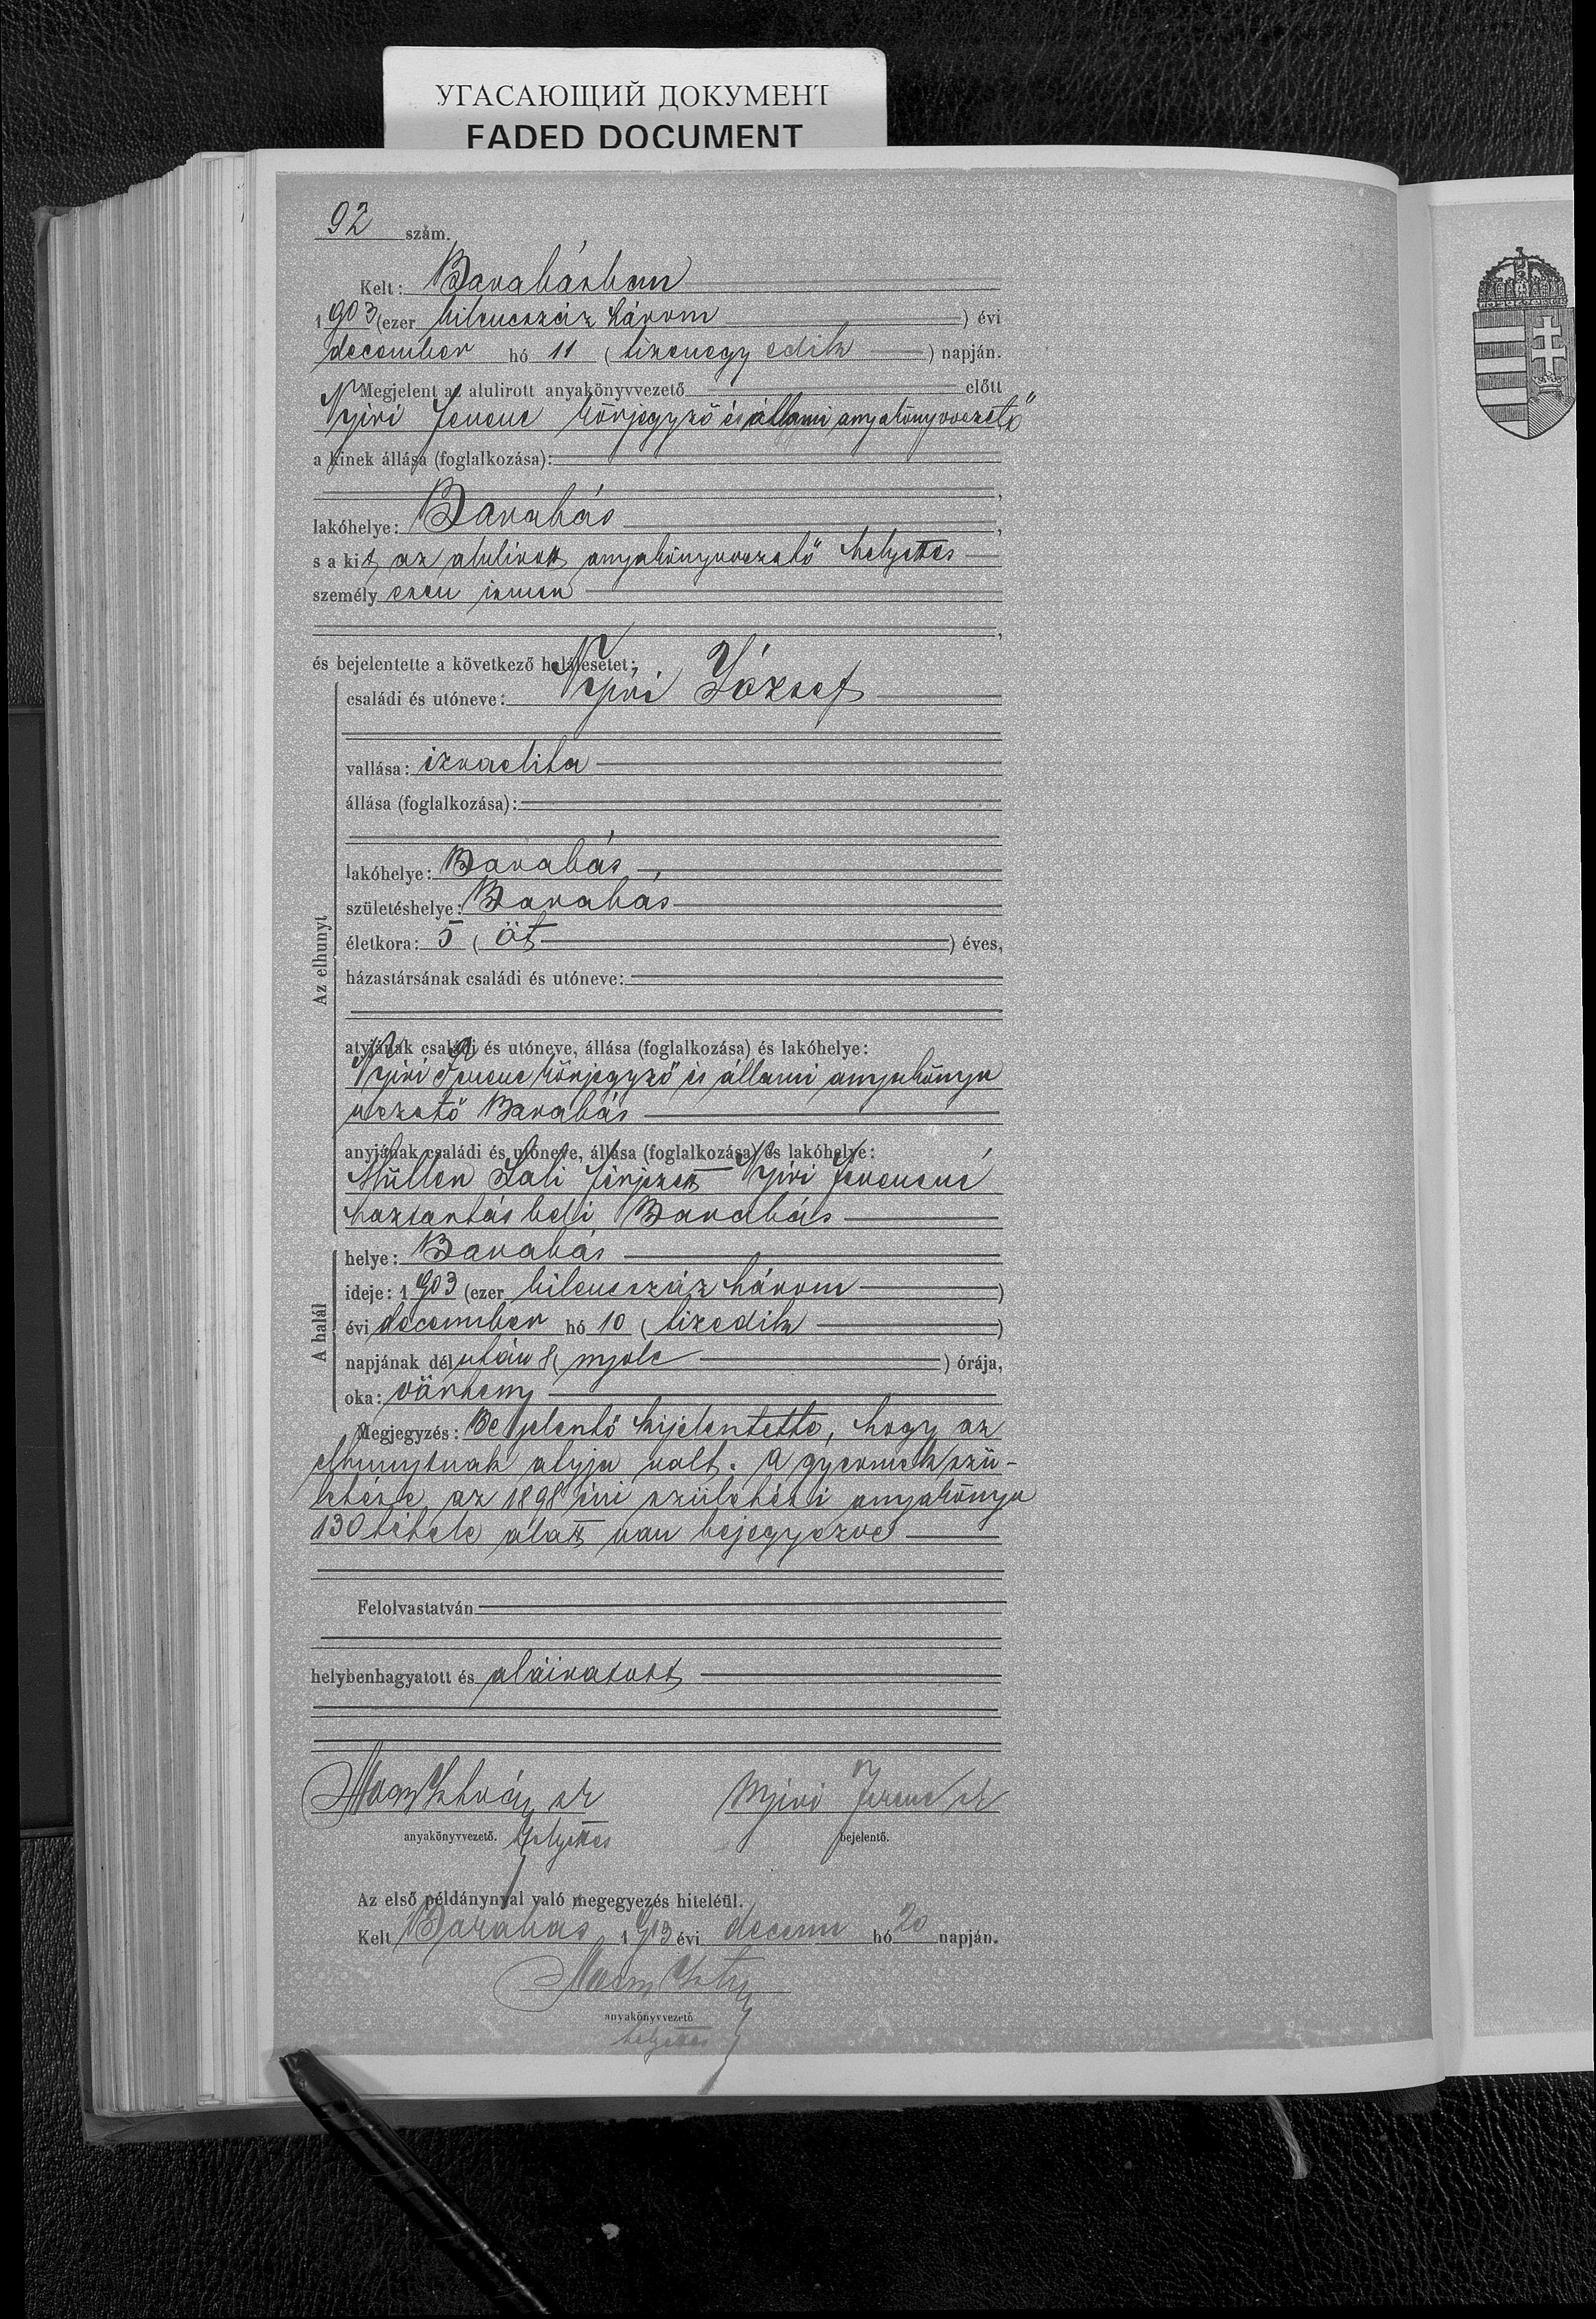 УГАСАЮЩИЙ ДОКУМЕНТ
FADED DOCUMENT
92 szám.
Kelt: Barabásban
1903 (ezer kilencszáz három) évi
december hó 11 (tizenegy edik) napján.
Megjelent az alulirott anyakönyvvezető előtt
Nyiri Ferenc körjegyző és állami anyakönyvvezető
a kinek állása (foglalkozása):
lakóhelye: Barabás,
s a kit az alulirott anyakönyvvezető helyettes
személyesen ismer
és bejelentette a következő halálesetet:
családi és utóneve: Nyiri József
vallása: izraelita
állása (foglalkozása):
lakóhelye: Barabás
születéshelye: Barabás
Az elhunyt
életkora: 5 (öt) éves,
házastársának családi és utóneve:
atyjának családi és utóneve, állása (foglalkozása) és lakóhelye:
Nyiri Ferenc körjegyző és állami anyakönyv
vezető Barabás
anyjának családi és utóneve, állása (foglalkozása) és lakóhelye:
Müller Sali férjezett Nyiri Ferencné
háztartásbeli Barabás
A halál
helye: Barabás
ideje: 1903 (ezer kilencszáz három)
évi december hó 10 (tizedik)
napjának délután 8 (nyolc) órája,
oka: vörheny
Megjegyzés: Bejelentő kijelentette, hogy az
elhunytnak atyja volt. A gyermek szü-
letése az 1898 évi születési anyakönyv
130 tétele alatt van bejegyezve
Felolvastatván
helybenhagyatott és aláiratott
Nyiri Ferenc sk
anyakönyvvezető. helyettes bejelentő.
Az első példánynyal való megegyezés hiteléül.
Kelt Barabás 1903 évi decem hó 20 napján.
anyakönyvvezető
helyettes